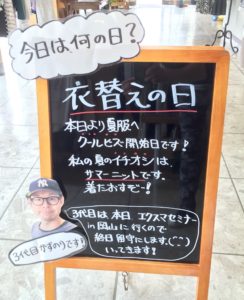 今日は何の日?
衣替えの日
本日より夏服へ
クールビズ開始日です!
私の夏のイチオシは、
サマーニットです。
着だおすぞー!
3代目は本日 エクスマセミナー
in 岡山に行くので
終日留守にします。(^^)
いってきます!
3代目かずのりです!